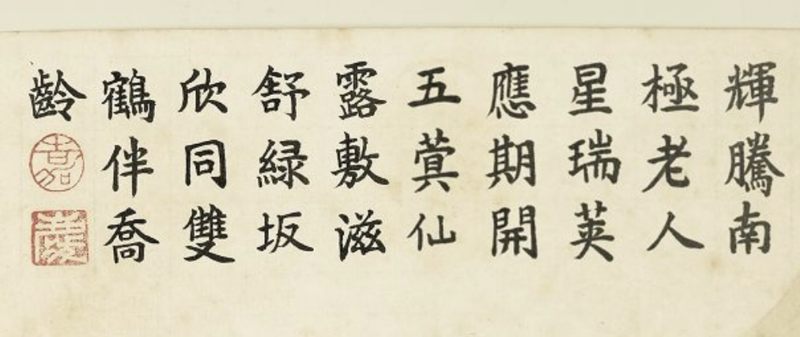 輝騰南
極老人
星瑞莢
應期開
五蓂仙
露敷滋
舒緑坂
欣同雙
鶴伴喬
齡
嘉
慶